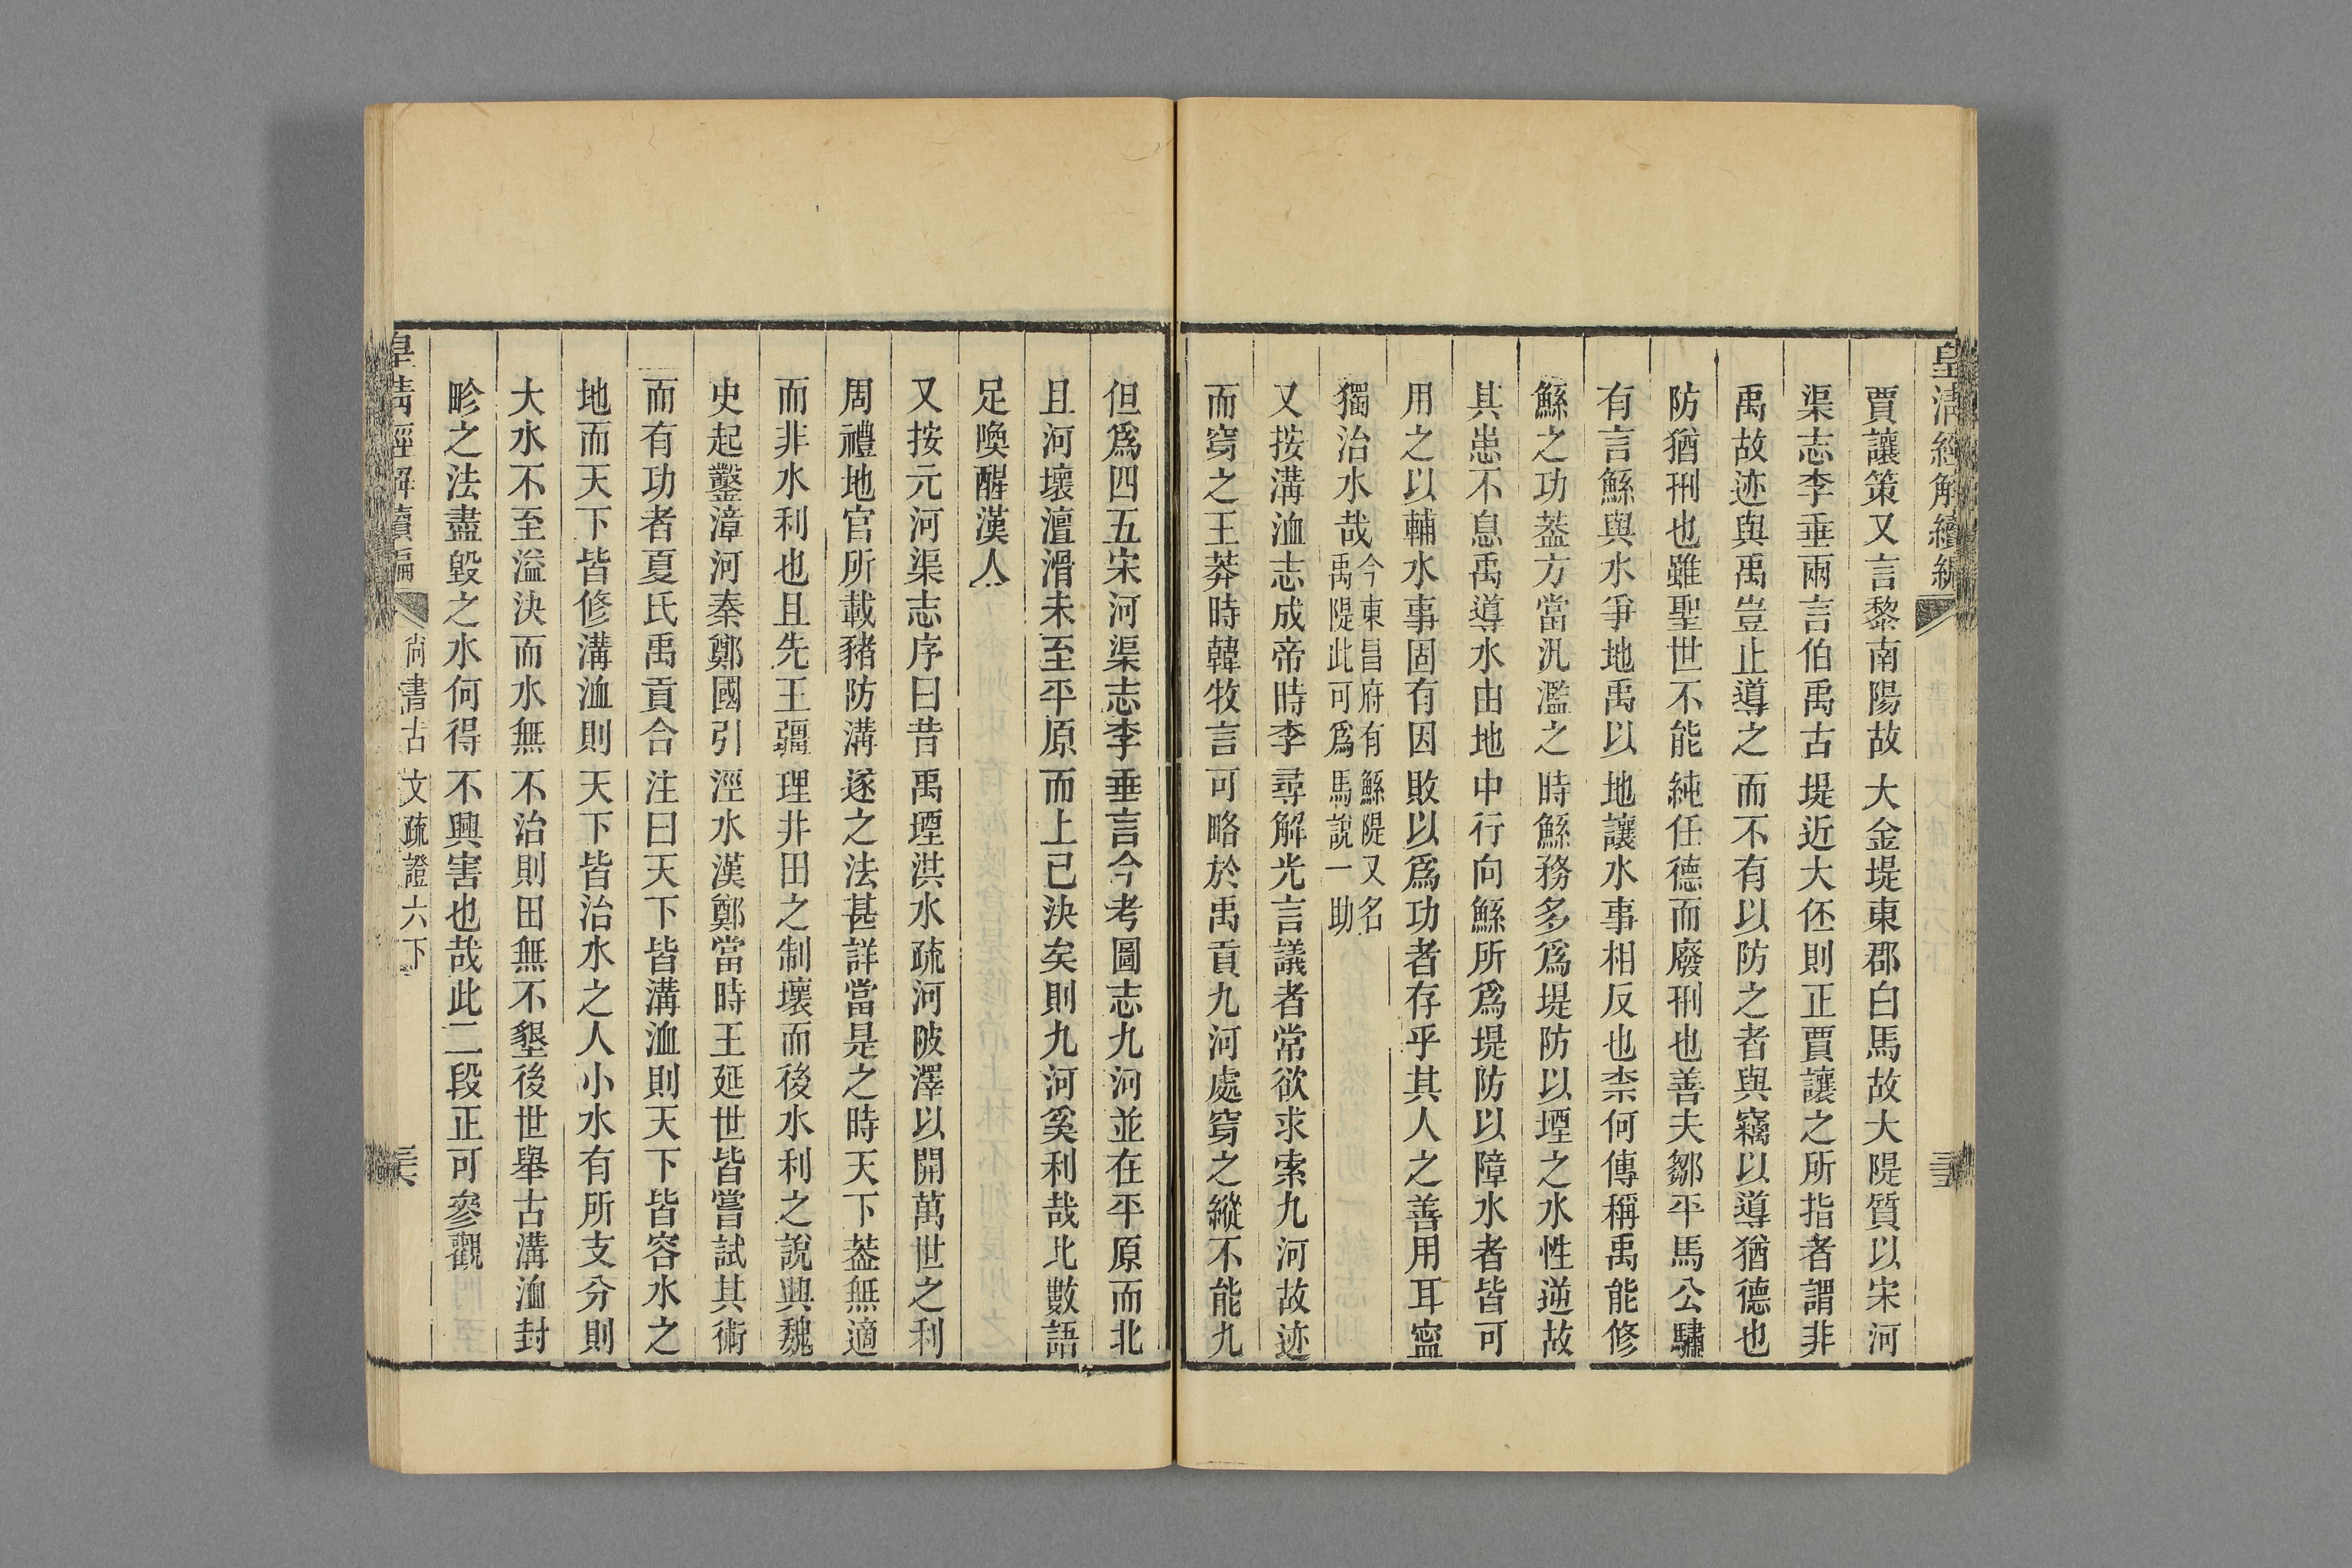 皇清經解續編
賈讓策又言黎南陽故大金堤東郡白馬故大隄質以宋河
渠志李垂兩言伯禹古堤近大伾則正賈讓之所指者謂非
禹故迹與禹豈止導之而不有以防之者與竊以導猶德也
防猶刑也雖聖世不能純任德而廢刑也善夫鄒平馬公驌
有言鯀與水爭地禹以地讓水事相反也柰何傳稱禹能修
鯀之功葢方當汎濫之時鯀務多爲堤防以堙之水性逆故
其患不息禹導水由地中行向鯀所爲堤防以障水者皆可
用之以輔水事固有因敗以爲功者存乎其人之善用耳寍
獨治水哉今東昌府有鯀隄又名禹隄此可爲馬說一助
又按溝洫志成帝時李尋解光言議者常欲求索九河故迹
而穿之王莽時韓牧言可略於禹貢九河處穿之縱不能九
但爲四五宋河渠志李垂言今考圖志九河並在平原而北
且河壞澶滑未至平原而上已決矣則九河奚利哉此數語
足喚醒漢人
又按元河渠志序曰昔禹堙洪水疏河陂澤以開萬世之利
周禮地官所載豬防溝遂之法甚詳當是之時天下葢無適
而非水利也且先王疆理井田之制壞而後水利之說興魏
史起鑿漳河秦鄭國引涇水漢鄭當時王延世皆嘗試其術
而有功者夏氏禹貢合注曰天下皆溝洫則天下皆容水之
地而天下皆修溝洫則天下皆治水之人小水有所支分則
大水不至溢決而水無不治則田無不墾後世舉古溝洫封
畛之法盡毀之水何得不興害也哉此二段正可參觀
皇清經解續編 尚書古文疏證六下